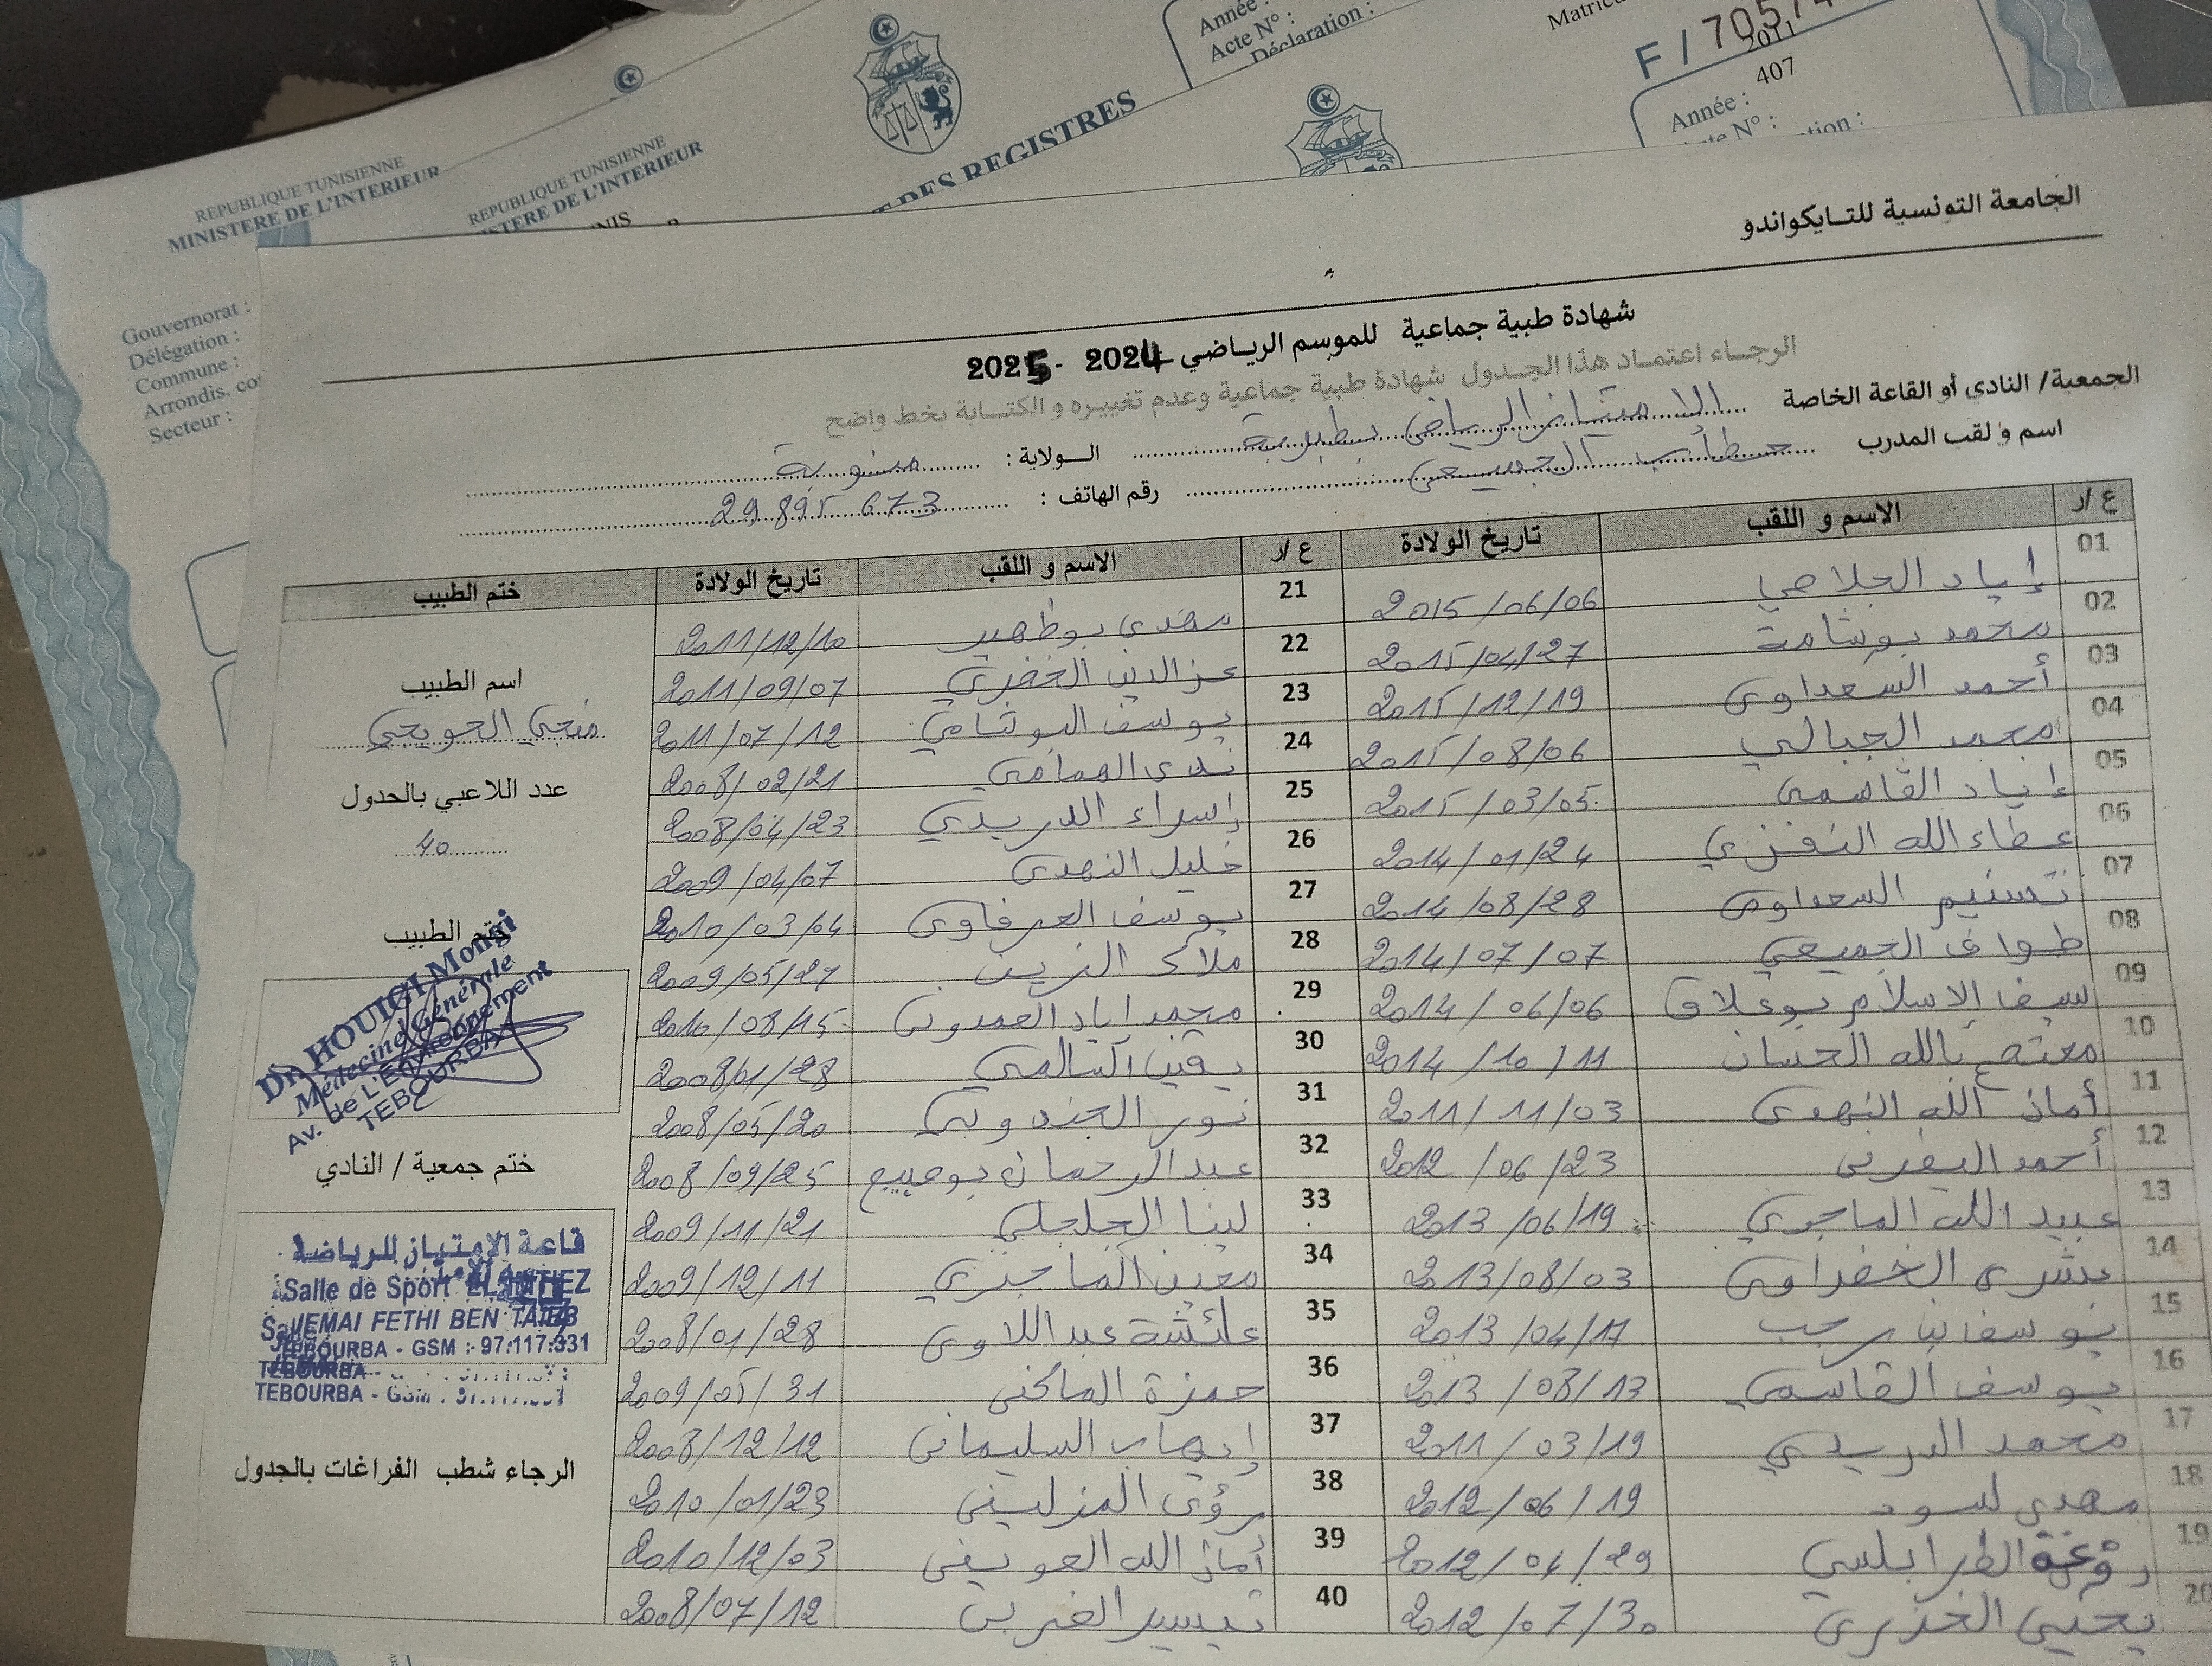 REPUBLIQUE TUNISIENNE
MINISTERE DE L'INTERIEUR
REPUBLIQUE TUNISIENNE
ISTERE DE L'INTERIEUR
DES REGISTRES
Année :
Acte N° :
Déclaration :
F / 705
2011
407
Année :
te N° :
tion :
Gouvernorat :
Délégation :
Commune :
Arrondis. co
Secteur :
الجامعة التونسية للتـايكواندو
شهادة طبية جماعية للموسم الرياضي 2024 - 2025
الرجـاء اعتمـاد هذا الجـدول شهادة طبية جماعية وعدم تغييره و الكتـابة بخط واضح
الجمعية/ النادي أو القاعة الخاصة الامتياز الرياضي بطبربة الـولاية : منوبة
اسم و لقب المدرب الجميعي رقم الهاتف : 29 895 673
ع /ر الاسم و اللقب تاريخ الولادة ع /ر الاسم و اللقب تاريخ الولادة ختم الطبيب
01 إياد الجلاصي 2015/06/06 21 مهدي بوطهير 2011/12/10
02 محمد بوشامة 2015/04/27 22 عز الدين الخفري 2011/09/07
03 أحمد السعداوي 2015/12/19 23 يوسف البوثامي 2011/07/12
04 محمد الجبالي 2015/08/06 24 ندى الهمامي 2008/02/21
05 إياد القاسمي 2015/03/05 25 إسراء الدريدي 2008/04/23
06 عطاء الله النفزي 2014/01/24 26 خليل النهدي 2009/04/07
07 تسنيم السعداوي 2014/08/28 27 يوسف العرفاوي 2010/03/04
08 طواف الجميعي 2014/07/07 28 ملاك الزين 2009/05/27
09 سيف الإسلام بوعلاق 2014/06/06 29 محمد اياد العمدوني 2010/08/15
10 بالله الحسان 2014/10/11 30 يقين السالمي 2008/01/28
11 أمان الله النهدي 2011/11/03 31 نور الجندوبي 2008/05/20
12 أحمد اليفرني 2012/06/23 32 عبد الرحمان 2008/09/25
13 عبيد الله الماجري 2013/06/19 33 لينا الجلجلي 2009/11/21
14 بشرى الخضراوي 2013/08/03 34 معين الماجري 2009/12/11
15 يوسف بن رجب 2013/04/17 35 عائشة عبد اللاوي 2008/01/28
16 يوسف القاسمي 2013/08/13 36 حمزة الماكني 2009/05/31
17 محمد الدريدي 2011/03/19 37 إيهاب السليماني 2008/12/12
18 مهدي لسود 2012/06/19 38 رؤى المزليني 2010/01/23
19 الطرابلسي 2012/04/29 39 أمان الله العويفي 2010/12/03
20 يحيى الخذري 2012/07/30 40 تيسير الغربي 2008/07/12
اسم الطبيب
منجي الحويجي
عدد اللاعبي بالجدول
40
ختم الطبيب
Dr. HOUIGI Mongi
Médecine Générale
Av. de L'Environnement
TEBOURBA
ختم جمعية / النادي
قاعة الإمتياز للرياضة
Salle de Sport EL IMTIEZ
JEMAI FETHI BEN TAIEB
TEBOURBA - GSM : 97.117.331
TEBOURBA
TEBOURBA - GSM :
الرجاء شطب الفراغات بالجدول